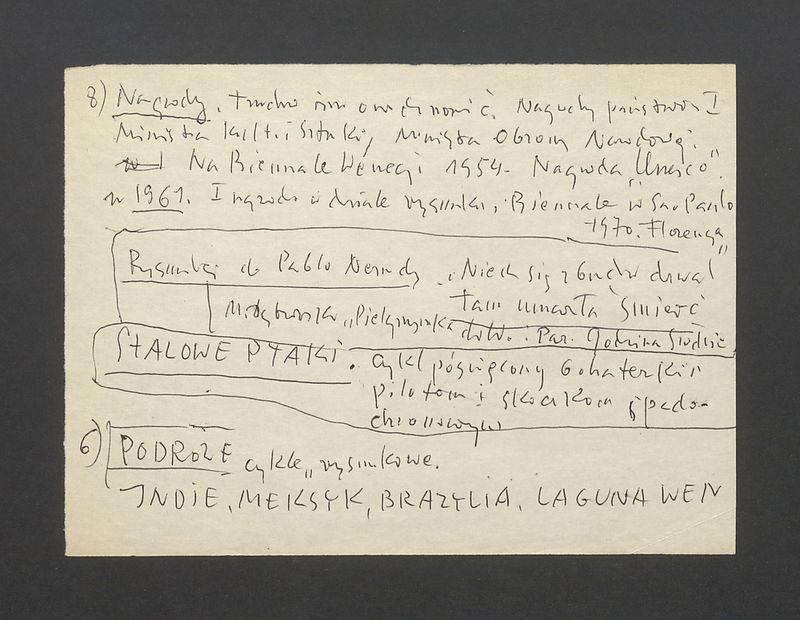 8) Nagrody. Trudno mi owe
Nagrody państw. I
Ministra Kult. i Sztuki, Ministra Obrony Narodowej.
Na Biennale Wenecji 1954. Nagroda „Unesco”.
w 1961. I nagroda w dziale rysunku, Biennale w Sao Paulo
1970. Florencja
Rysunki do Pablo Nerudy. „Niech się zbudzi drwal
tam umarła śmierć
„Pielgrzymka
STALOWE PTAKI. cykl poświęcony bohaterskim
pilotom i skoczkom spado-
chronowym
6) PODRÓŻE cykle „rysunkowe.
INDIE, MEKSYK, BRAZYLIA, LAGUNA WEN